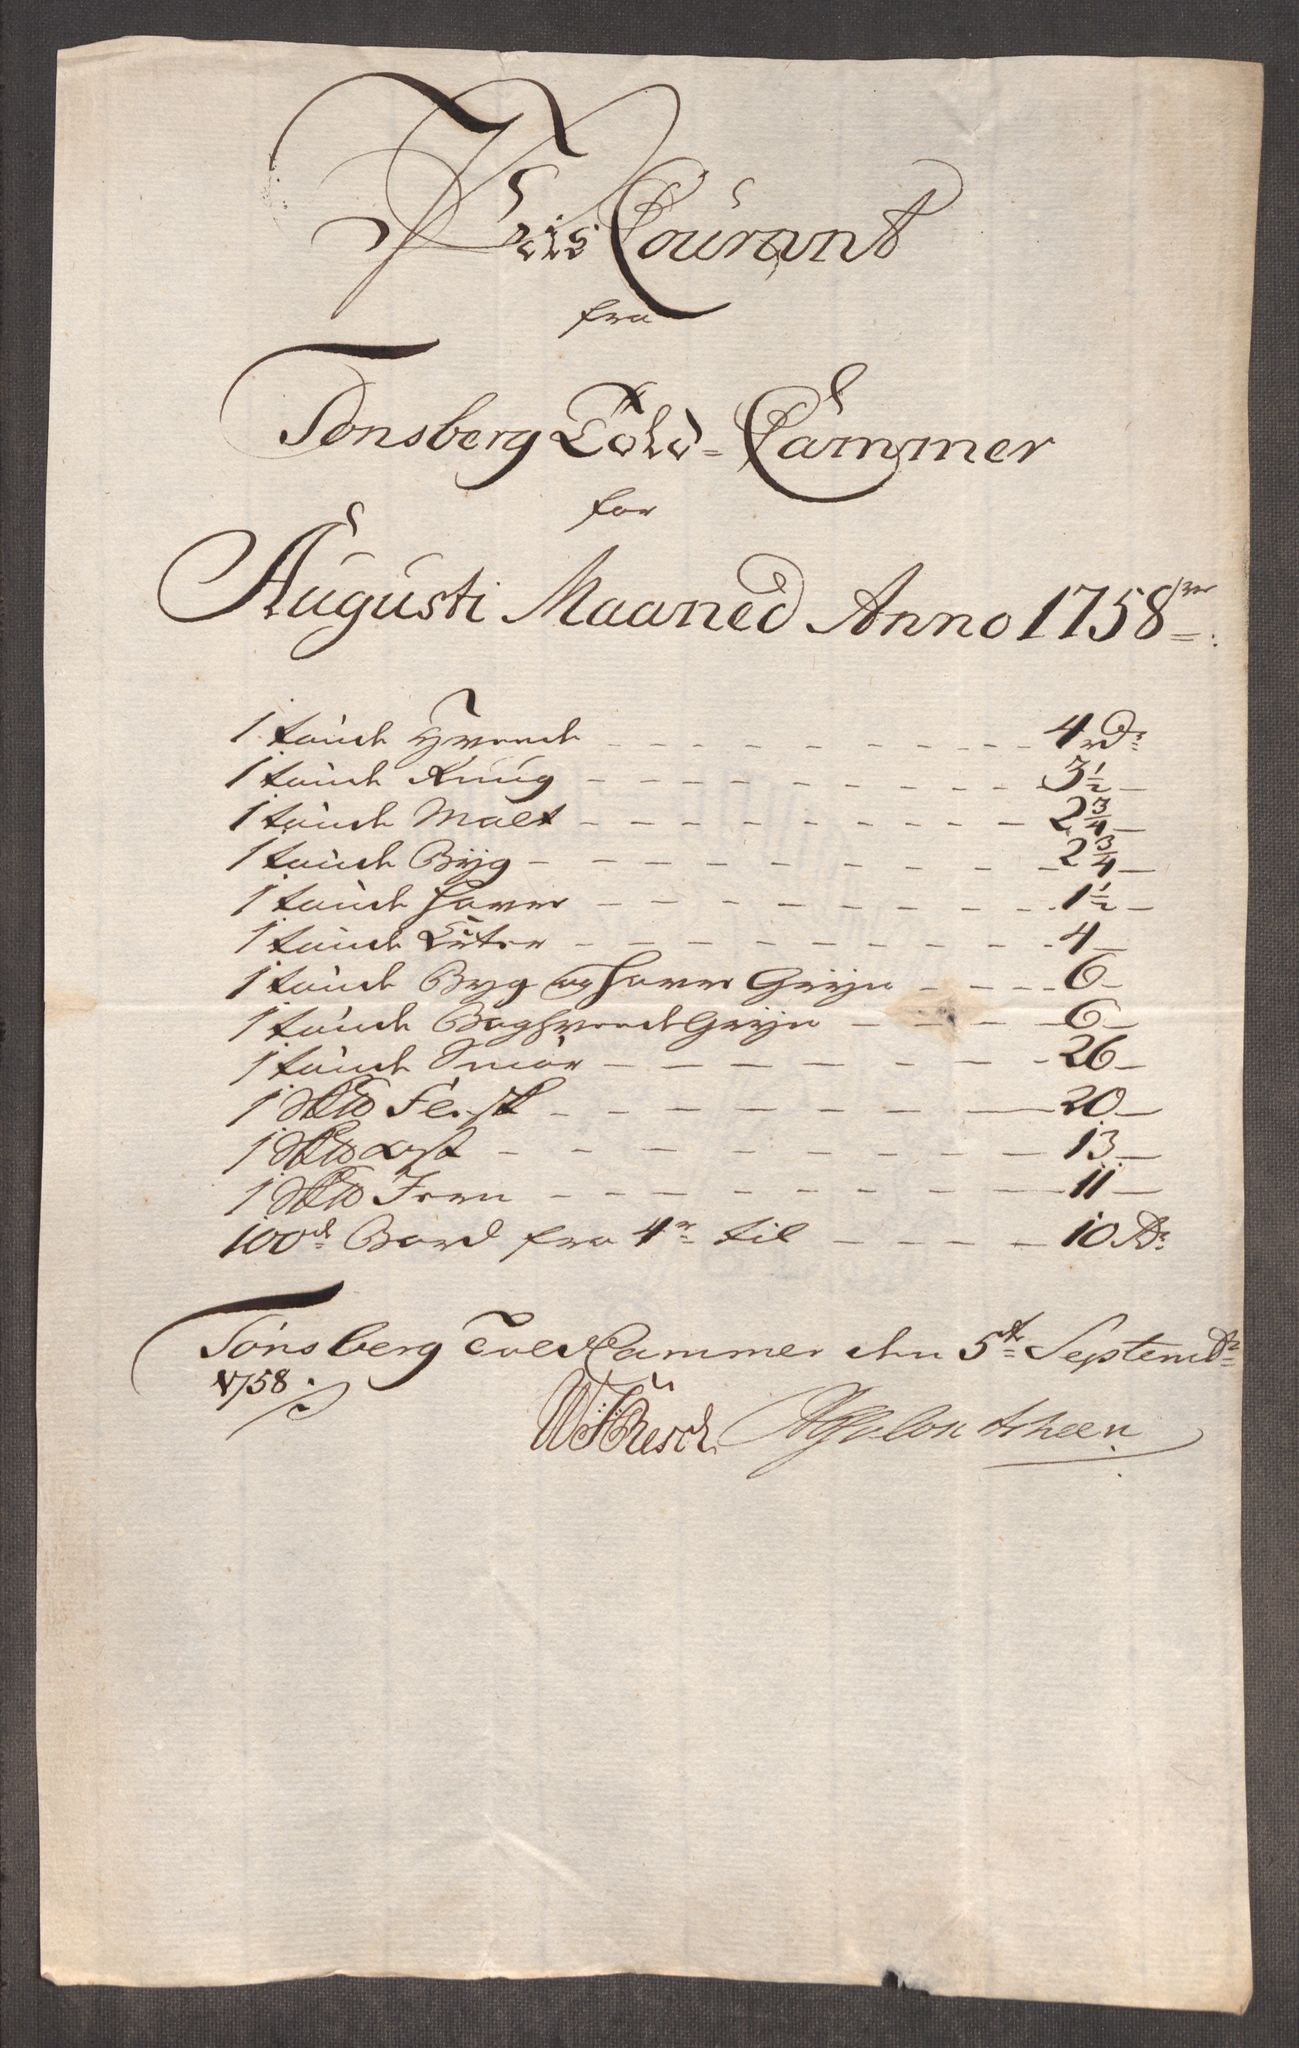 Priis Courant
fra
Tønsberg Told-Cammer
for
Augusti Maaned Anno 1758
1 tønde Hvede 4 rdr
1 tønde Rúug 3 1/2
1 tønde Malt 2 3/4
1 tønde Bÿg 2 3/4
1 tønde Havre 1 1/2
1 tønde Erter 4
1 tønde Byg og Havre Grÿn 6
1 tønde Boghvede Grÿn 6
1 tønde Smør 26
1 Flesk 20
1 Ost 13
1 Jern 11
100de Bord fra 4 r til 10 Rdr
Tønsberg Told Cammer den 5te Septembr
1758.